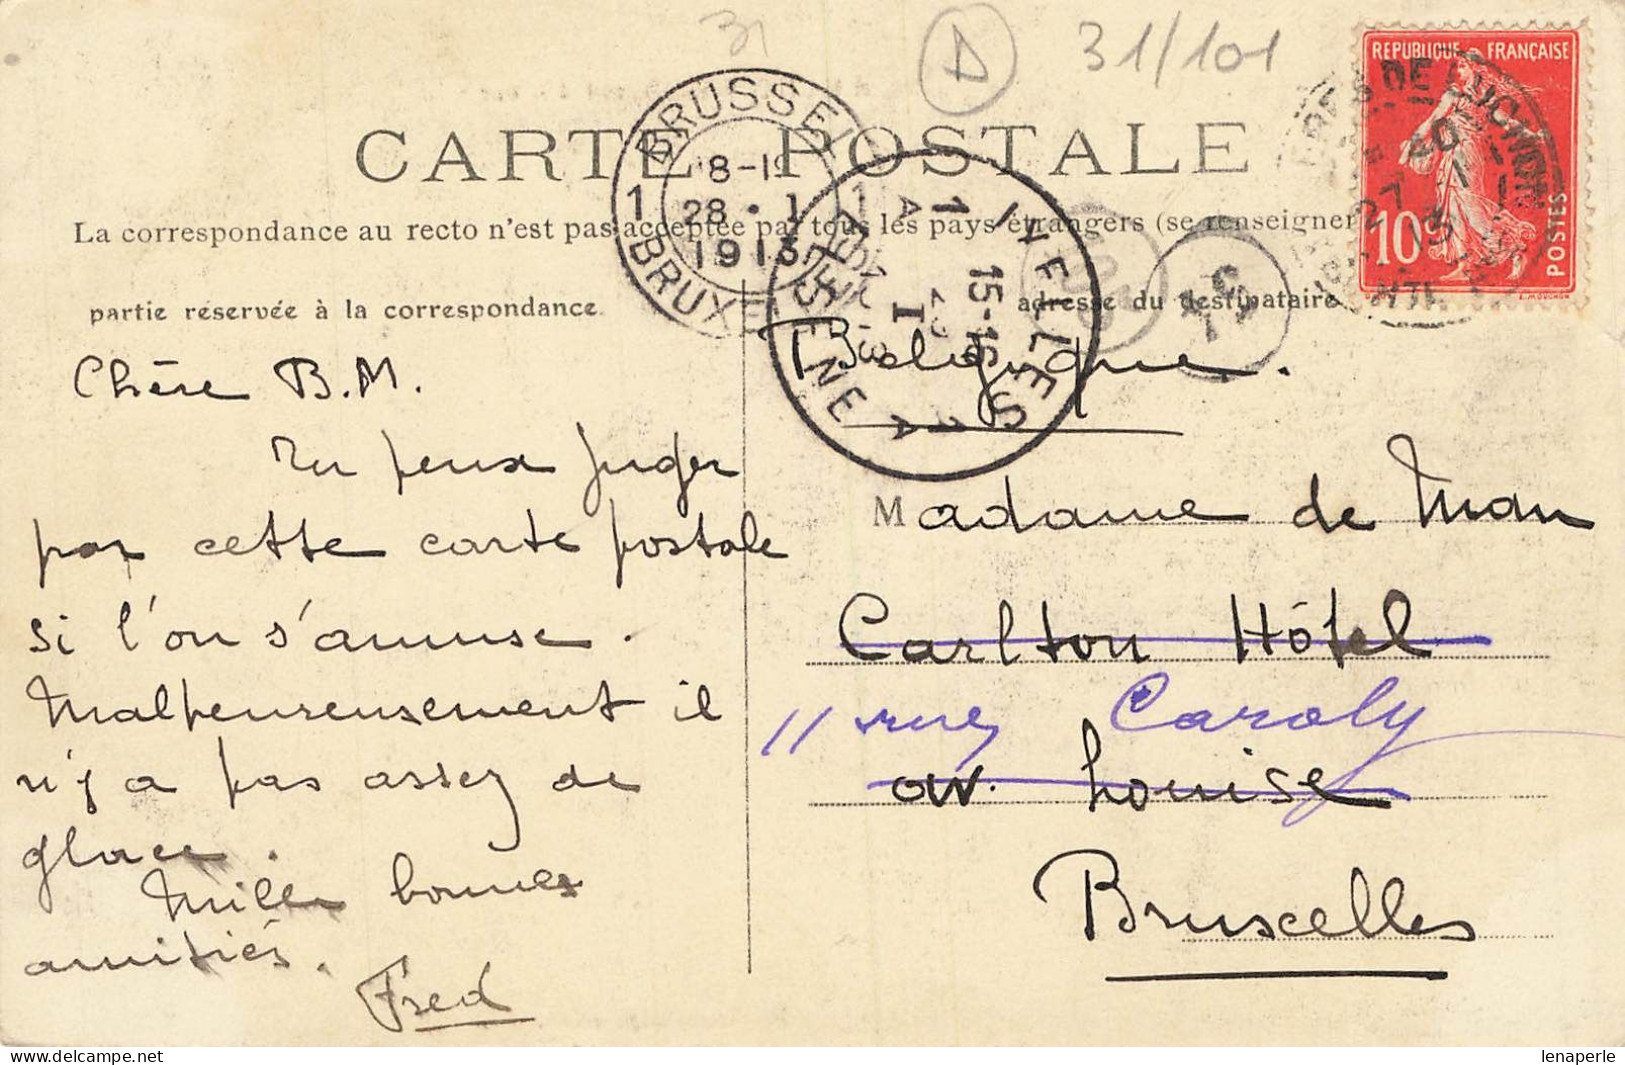 31
D
31/101
REPUBLIQUE FRANÇAISE
10c
POSTES
CARTE POSTALE
BRUSSEL
1
28 · 1
1913
BRUX
NIVELLES
1 A
15-16
I
La correspondance au recto n'est pas acceptée par tous les pays étrangers (se renseigner
partie réservée à la correspondance
adresse du destinataire
Belgique.
Chère B.M.
Tu peux juger
par cette carte postale
si l'on s'amuse.
Malheureusement il
n'y a pas assez de
glace.
Mille bonnes
amitiés.
Fred
Madame de Man
Carlton Hôtel
11 rue Caroly
av. Louise
Bruxelles
lenaperle